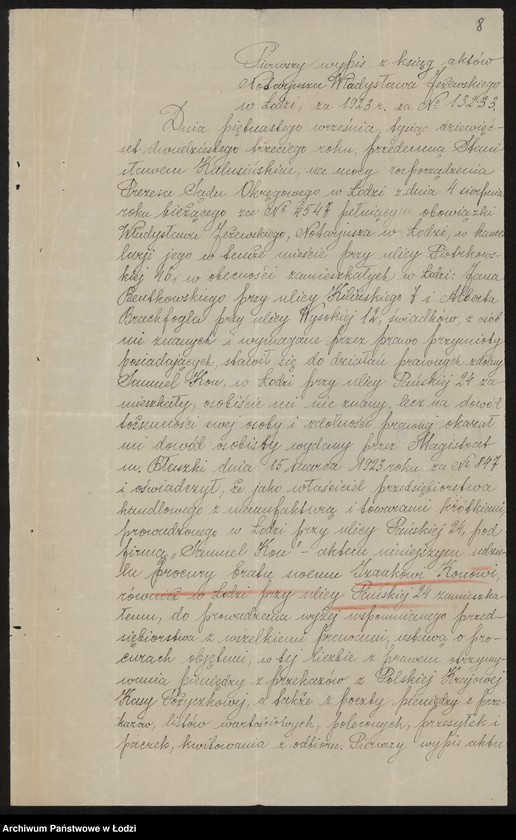 8
Pierwszy wypis z ksiąg aktów
Notarjusza Władysława Jeżewskiego
w Łodzi, za 1923 r. za № 13233,
Dnia piętnastego września, tysiąc dziewięć-
set dwudziestego trzeciego roku, przedemną Stani
sławem Kałusińskim, na mocy rozporządzenia
Prezesa Sądu Okręgowego w Łodzi z dnia 4 sierpnia
roku bieżącego, za № 4547 pełniącym obowiązki
Władysława Jeżewskiego, Notarjusza w Łodzi, w kance
larji jego w temże mieście przy ulicy Piotrkow-
skiej 46, w obecności zamieszkałych w Łodzi: Jana
Bentkowskiego przy ulicy Kilińskiego 7 i Alberta
Brachfogla przy ulicy Wysokiej 12, świadków, z osób
mi znanych i wymagane przez prawo przymioty
posiadających, stawił się do działań prawnych zdolny
Samuel Kon, w Łodzi przy ulicy Pańskiej 24 za-
mieszkały, osobiście mi nie znany, lecz na dowód
tożsamości swej osoby i zdolności prawnej okazał
mi dowód osobisty wydany przez Magistrat
m. Błaszki dnia 15 marca 1923 roku za № 847
i oświadczył, że jako właściciel przedsiębiorstwa
handlowego z manufakturą i towarami krótkiemi,
prowadzonego w Łodzi przy ulicy Pańskiej 24, pod
firmą „Samuel Kon" - aktem niniejszym udzie-
la procury bratu swemu Izaakowi Konowi,
również w Łodzi przy ulicy Pańskiej 24 zamieszka-
łemu, do prowadzenia wyżej wspomnianego przed-
siębiorstwa z wszelkiemi prawami, ustawą o pro-
curach objętemi, w tej liczbie z prawem otrzymy-
wania pieniędzy z przekazów z Polskiej Krajowej
Kasy Pożyczkowej, a także z poczty pieniędzy z prze-
kazów, listów wartościowych, poleconych, przesyłek i
paczek, kwitowania z odbioru. Pierwszy wypis aktu
Archiwum Państwowe w Łodzi